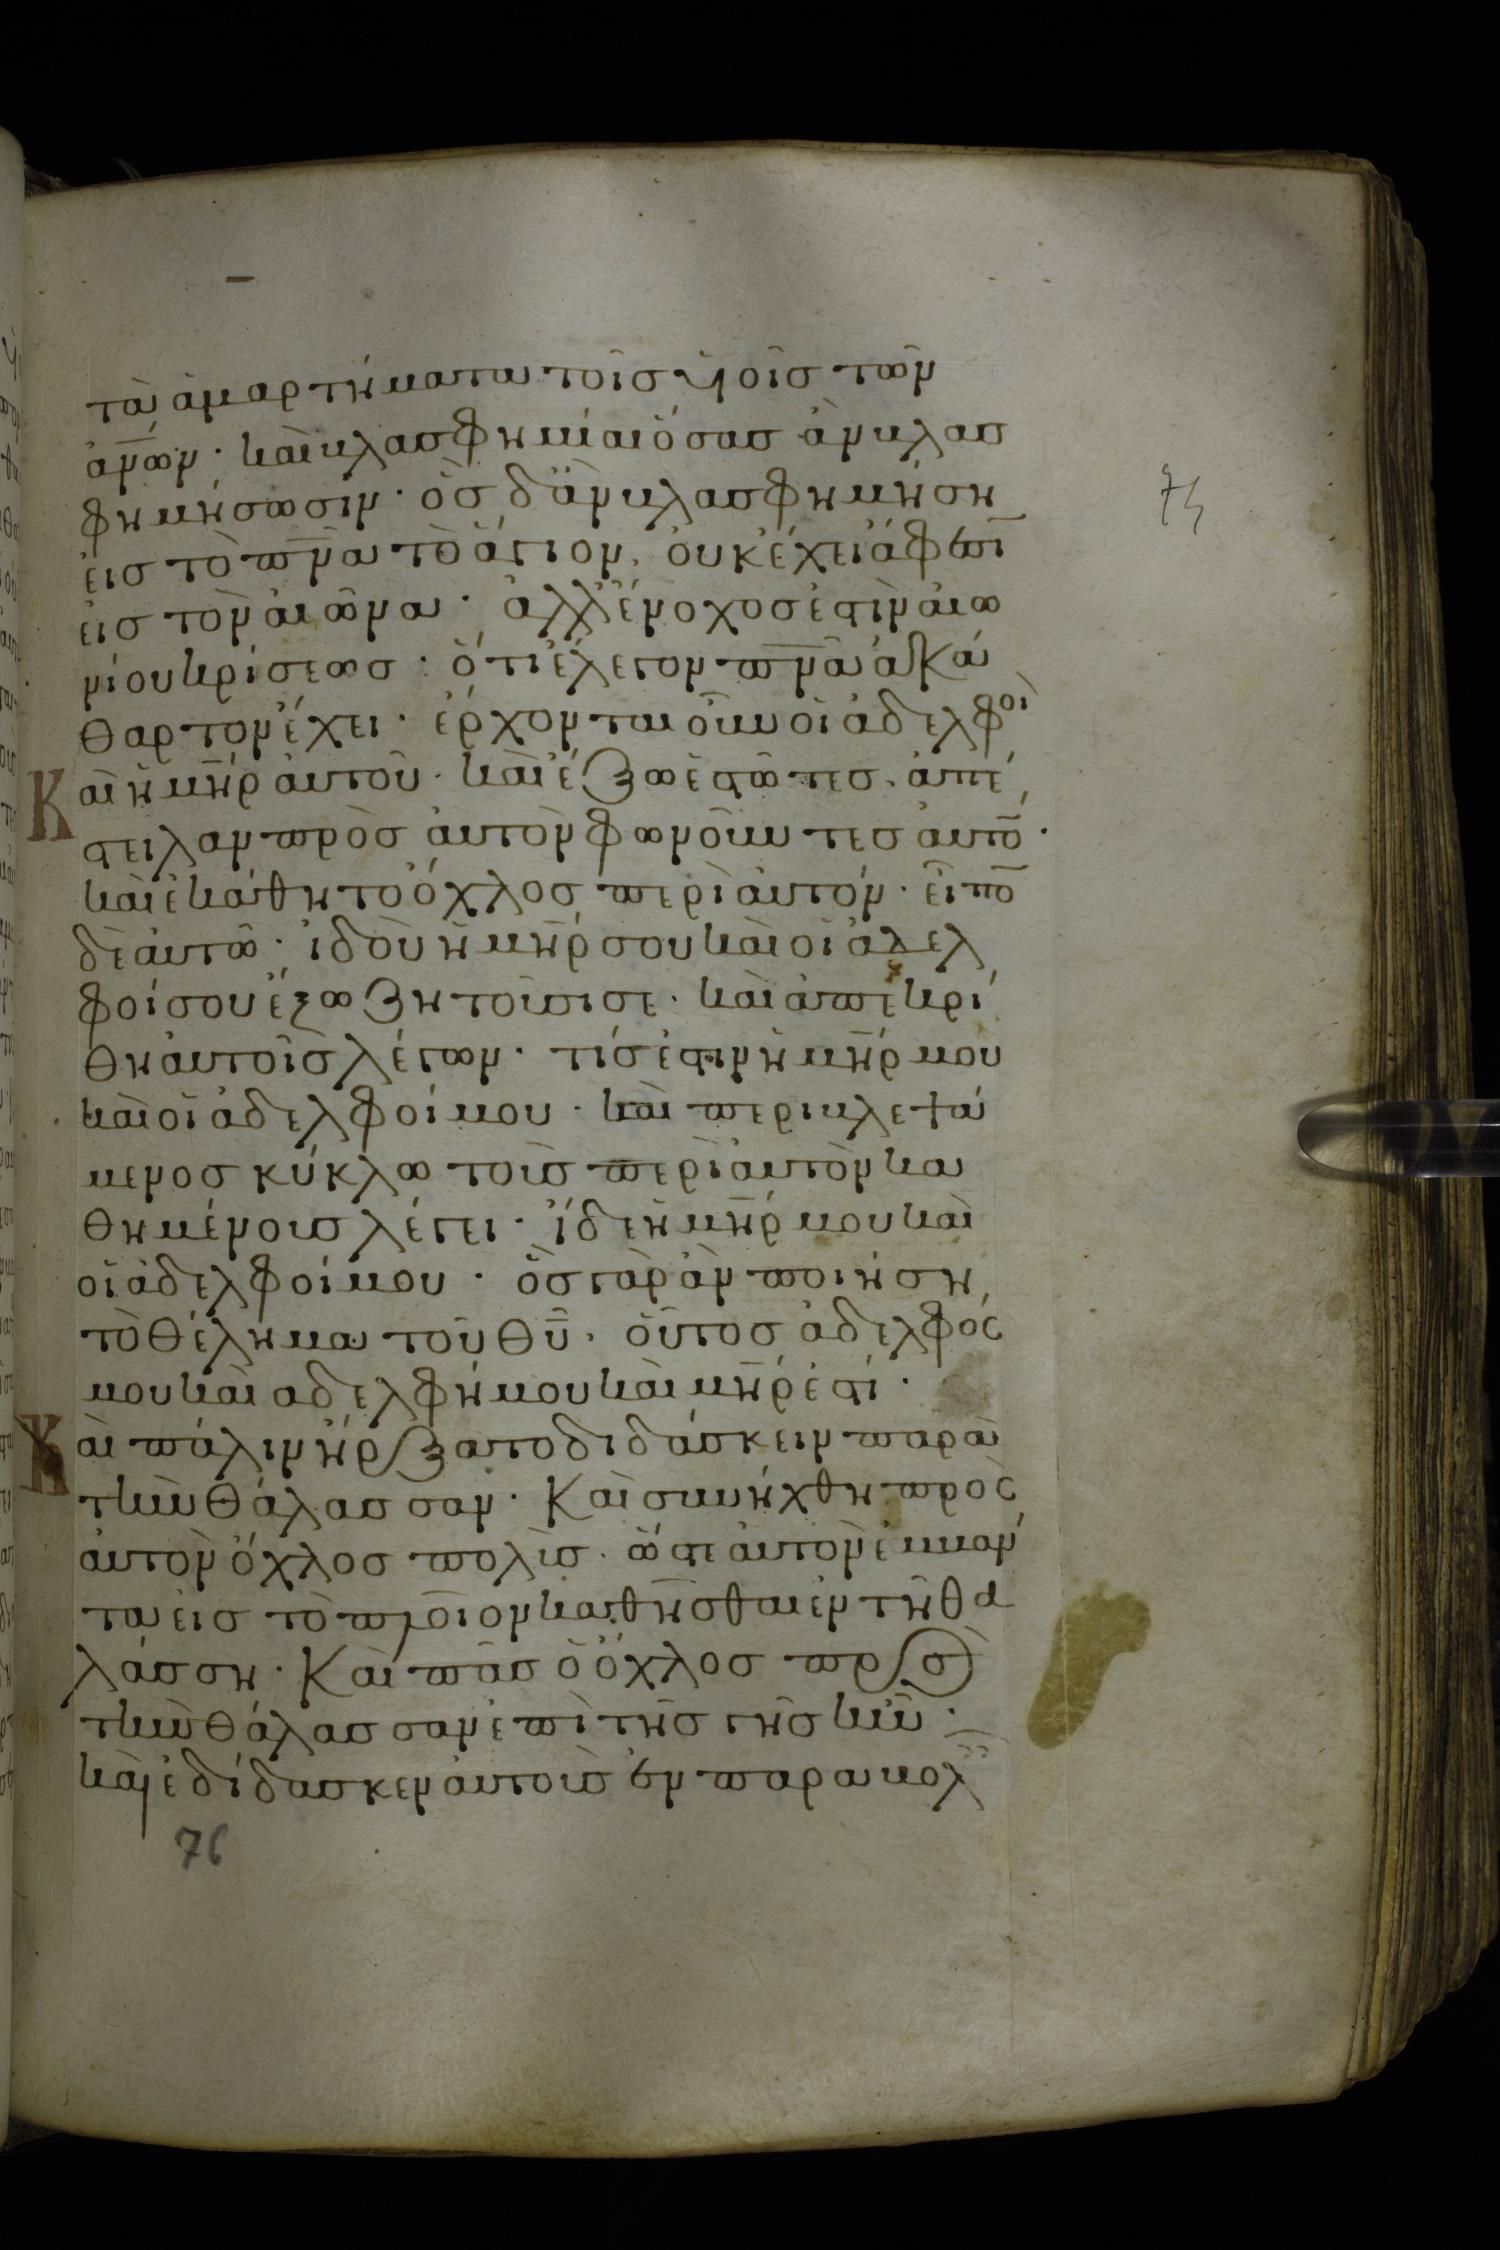 τὰ ἁμαρτήματα τοῖς υἱοῖς τῶν
ἀν̅ω̅ν· καὶ βλασφημίαι ὅσας ἂν βλασ
φημήσωσιν· ὃς δ̓ ἂν βλασφημήση
εἰς τὸ πν̅α τὸ ἅγιον, οὐκ ἔχει ἄφεσι̅
εἰς τὸν αἰῶνα· ἀλλ' ἔνοχος ἐστὶν αἰω
νίου κρίσεως· ὅτι ἔλεγον πν̅α ἀκά
θαρτον ἔχει· ἔρχονται οὖν οἱ ἀδελφοὶ
Καὶ ἡ μη̅ρ αὐτοῦ· καὶ ἔξω ἑστῶτες· ἀπέ
στειλαν πρὸς αὐτὸν φωνοῦντες αὐτο̅·
καὶ ἐκάθητο ὄχλος περὶ αὐτόν· εἶπο̅
δὲ αὐτῶ· ἰδοὺ ἡ μη̅ρ σου καὶ οἱ ἀδελ
φοί σου ἔξω ζητοῦσι σε· καὶ ἀπεκρί
θη αὐτοῖς λέγων· τίς ἐστιν ἡ μη̅ρ μου
καὶ οἱ ἀδελφοί μου· καὶ περιβλεψά
μενος κύκλω τοὺς περὶ αὐτὸν κα
θημένους λέγει· ἴδε ἡ μη̅ρ μου καὶ
οἱ ἀδελφοί μου· ὃς γὰρ ἂν ποιήση
τὸ θέλημα τοῦ θυ̅· οὗτος ἀδελφός
μου καὶ αδελφή μου καὶ μη̅ρ ἐστί·
Καὶ πάλιν ἤρξατο διδάσκειν παρὰ
τὴν θάλασσαν· Καὶ συνήχθη πρὸς
αὐτὸν ὄχλος πολὺς· ὥστε αὐτὸν ἐμβάν
τα εἰς τὸ πλοῖον καθῆσθαι ἐν τῆ θα
λάσση· Καὶ πᾶς ὁ ὄχλος πρὸς
τὴν θάλασσαν ἐπὶ τῆς γῆς ἦν·
καὶ ἐδίδασκεν αὐτοὺς ἐν παραβολ
76